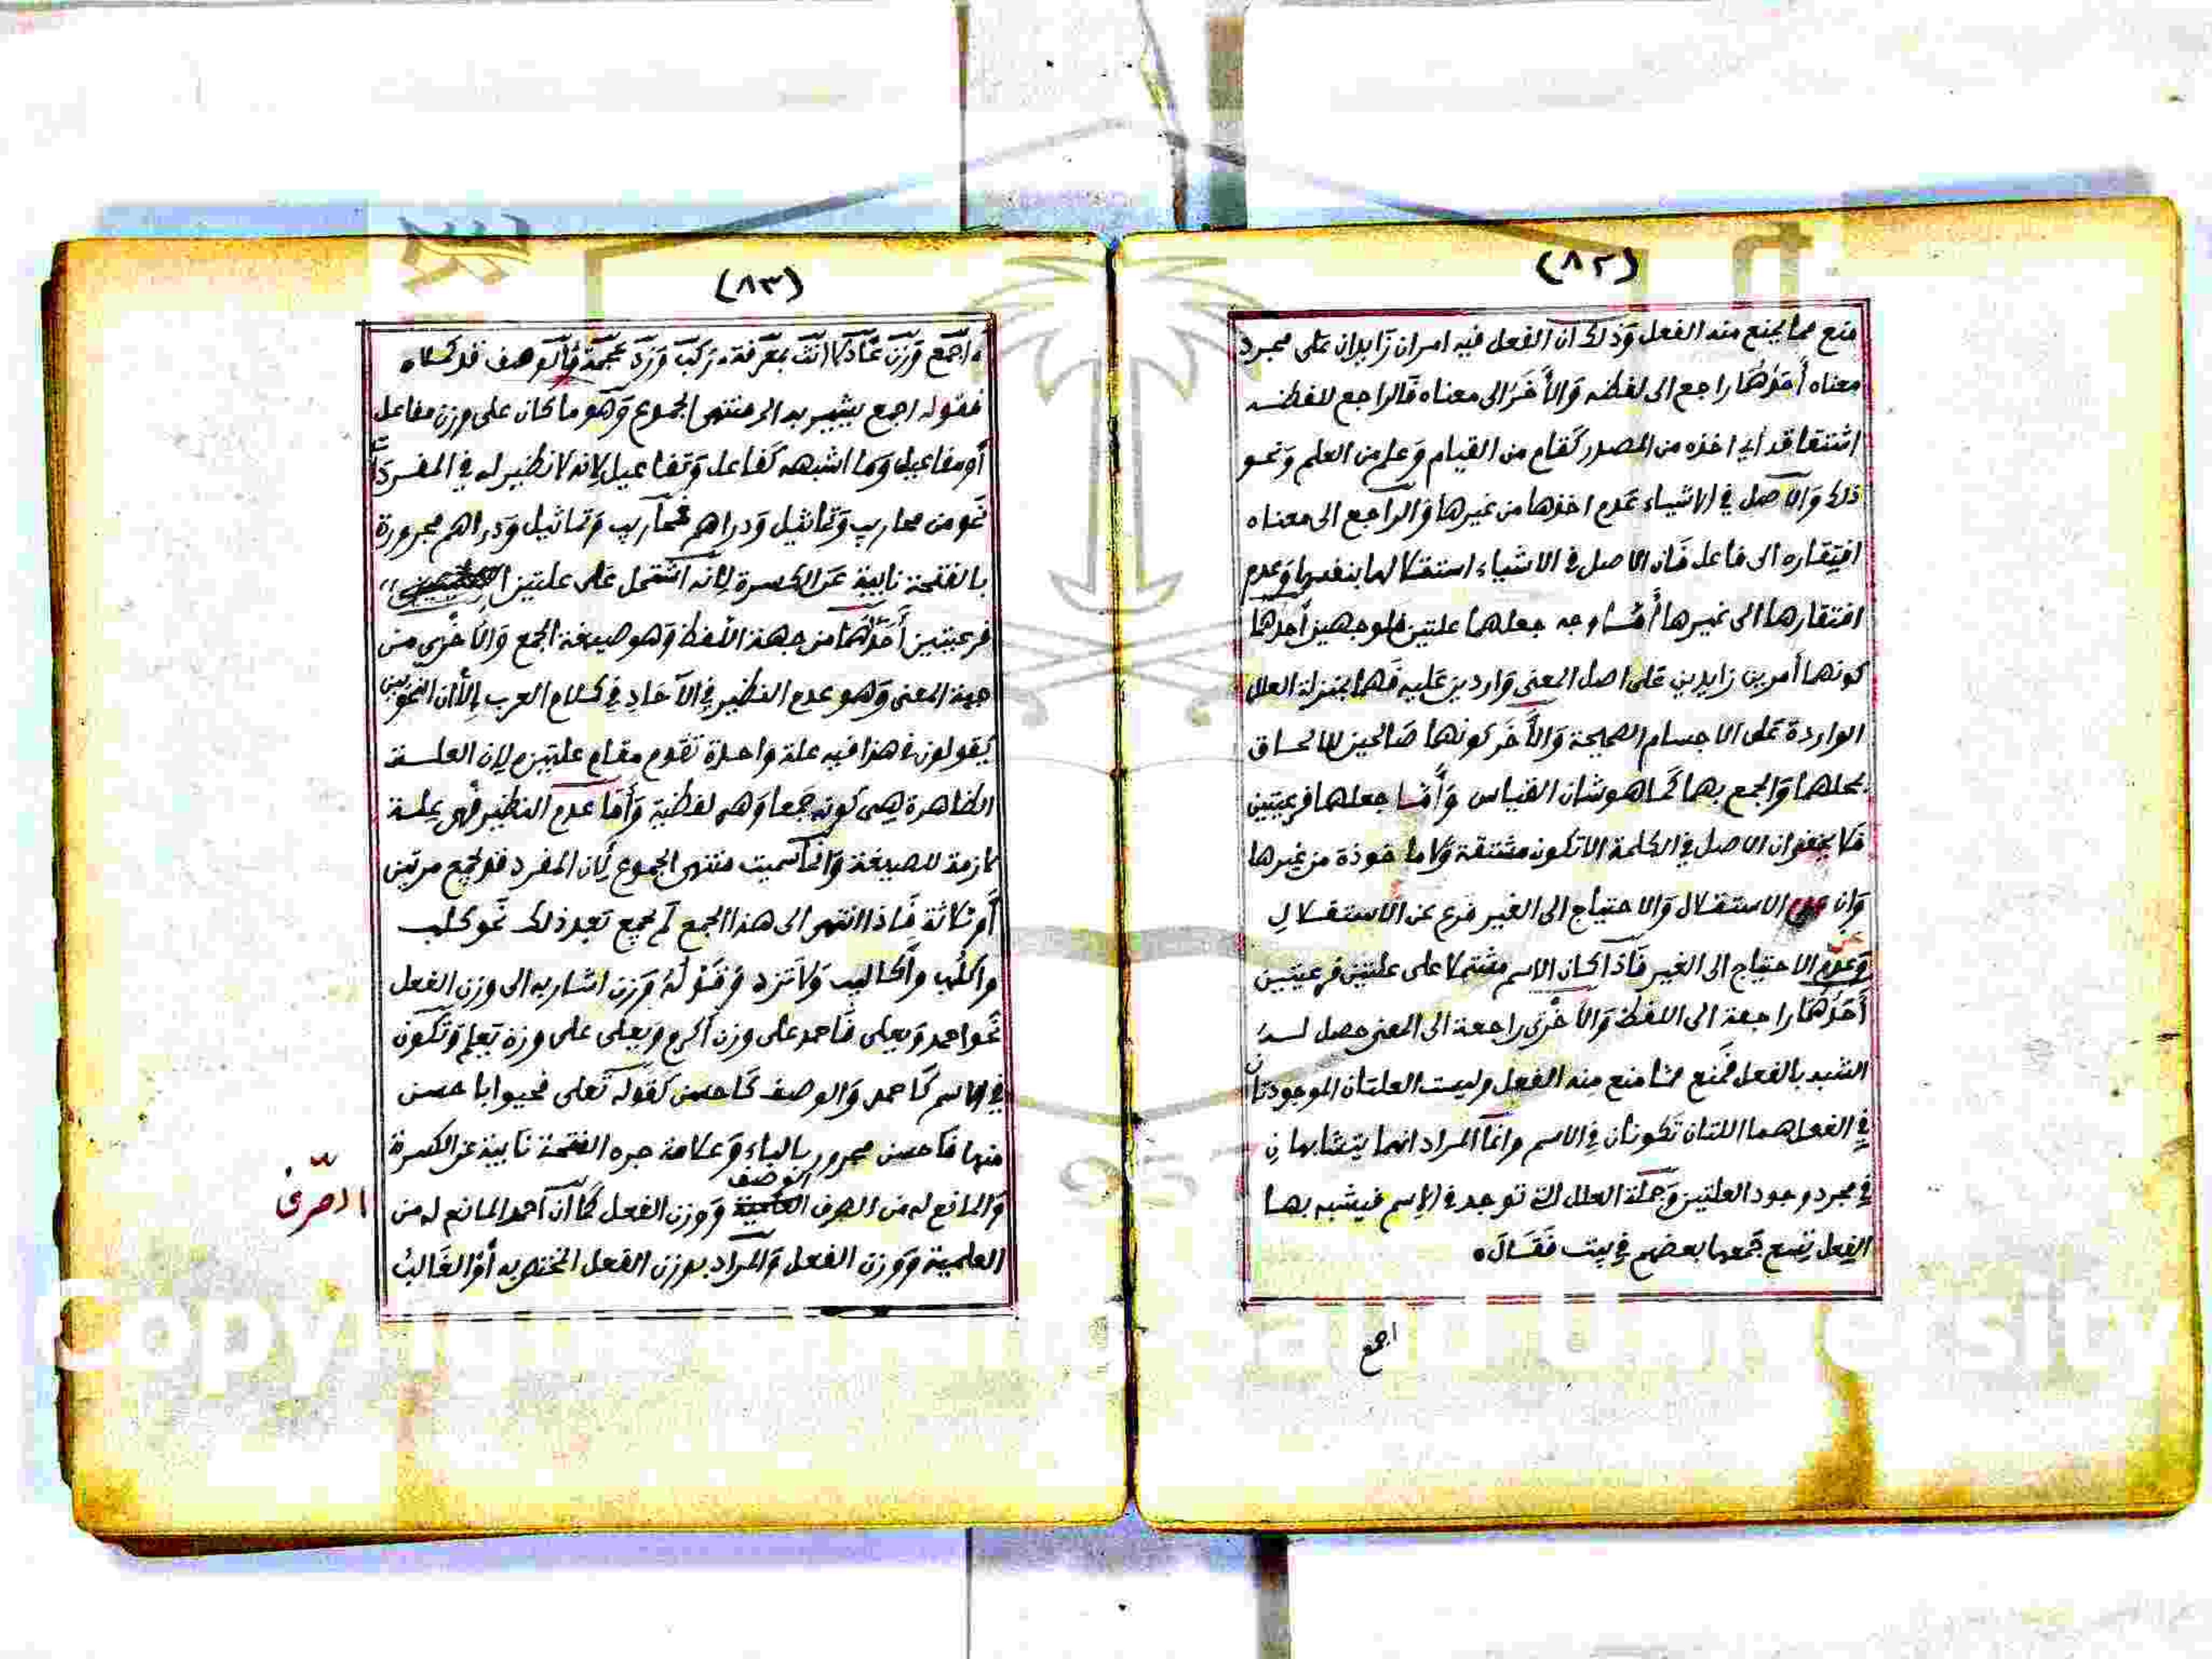 (٨٢)
منع مما يمنع منه الفعل وذلك ان الفعل فيه امران زايدان على مجرد
معناه أحدُهما راجع الى لفظه والأخَر الى معناه فالراجع للفظه
اشتقاقه أي اخذه من المصدر كقام من القيام وعلم من العلم ونحو
ذلك والأصل في الاشياء عدم اخذها من غيرها والراجع الى معناه
افتقاره الى فاعل فان الاصل في الاشياء استقلالها بنفسها وعدم
افتقارها الى غيرها أما وجه جعلهما علتين فلوجهين أحدهما
كونهما أمرين زايدين على اصل المعنى واردين عليه فهما بمنزلة العلل
الواردة على الاجسام الصحيحة والأخر كونهما صالحين للالحاق
بمحلهما والجمع بهما كما هو شان القياس وأما جعلهما فرعيتين
فلا يخفى ان الاصل في الكلمة الا تكون مشتقة ولا ماخوذة من غيرها
وان الاستقلال والاحتياج الى الغير فرع عن الاستقلالِ
وعدم الاحتياج الى الغير فاذا كان الاسم مشتملا على علتين فرعيتين
أحدُهما راجعة الى اللفظ والأخرى راجعة الى المعنى حصل له
الشبه بالفعل فمنع مما منع منه الفعل وليست العلتان الموجودتان
في الفعل هما اللتان تكونان في الاسم وانما المراد انهما يتشابهانِ
في مجرد وجود العلتين وجملة العلل التي توجد في الاسم فيشبه بها
الفعل تسع جمعها بعضهم في بيت فَقَالَ
اجمع
(٨٣)
اجمع وزن عادلا انث بمعرفة ركب وزد عجمة فالوصف قد كملا
فقوله اجمع يشير به الى منتهى الجموع وهو ما كان على وزن مفاعل
أو مفاعيل وما اشبهه كفاعل وتفاعيل لانه لا نظير له في المفردات
نحو من محاريب وتماثيل ودراهم فمحاريب وتماثيل ودراهم مجرورة
بالفتحة نايبة عن الكسرة لانه اشتمل على علتين
فرعيتين أحدهما من جهة اللفظ وهو صيغة الجمع والأخرى من
جهة المعنى وهو عدم النظير في الآحادِ في كلام العرب إلا أن النحويين
يقولون في هذا فيه علة واحدة تقوم مقام علتين لان العلة
الظاهرة هى كونه جمعا وهى لفظية وأما عدم النظير فهي علة
لازمة للصيغة وانما سميت منتهى الجموع لان المفرد قد يجمع مرتين
أو ثلاثة فاذا انتهى الى هذا الجمع لم يجمع بعد ذلك نحو كلب
واكلُب وأكالب ولا تزد وقَوْلهُ وَزِن اشار به الى وزن الفعل
نحو احمد ويعلى فاحمد على وزن اكرم ويعلى على وزن يعلم وتكون
في الاسم كاحمد والوصف كاحسن كقوله تعلى فحيوا باحسن
منها فاحسن مجرور بالباء وعلامة جره الفتحة نايبة عن الكسرة
والمانع له من الصرف الوصف ووزن الفعل كما ان احمد المانع له من
الصرف
العلمية ووزن الفعل والمراد بوزن الفعل المختص به أو الغالبُ
Copyright © King Saud University